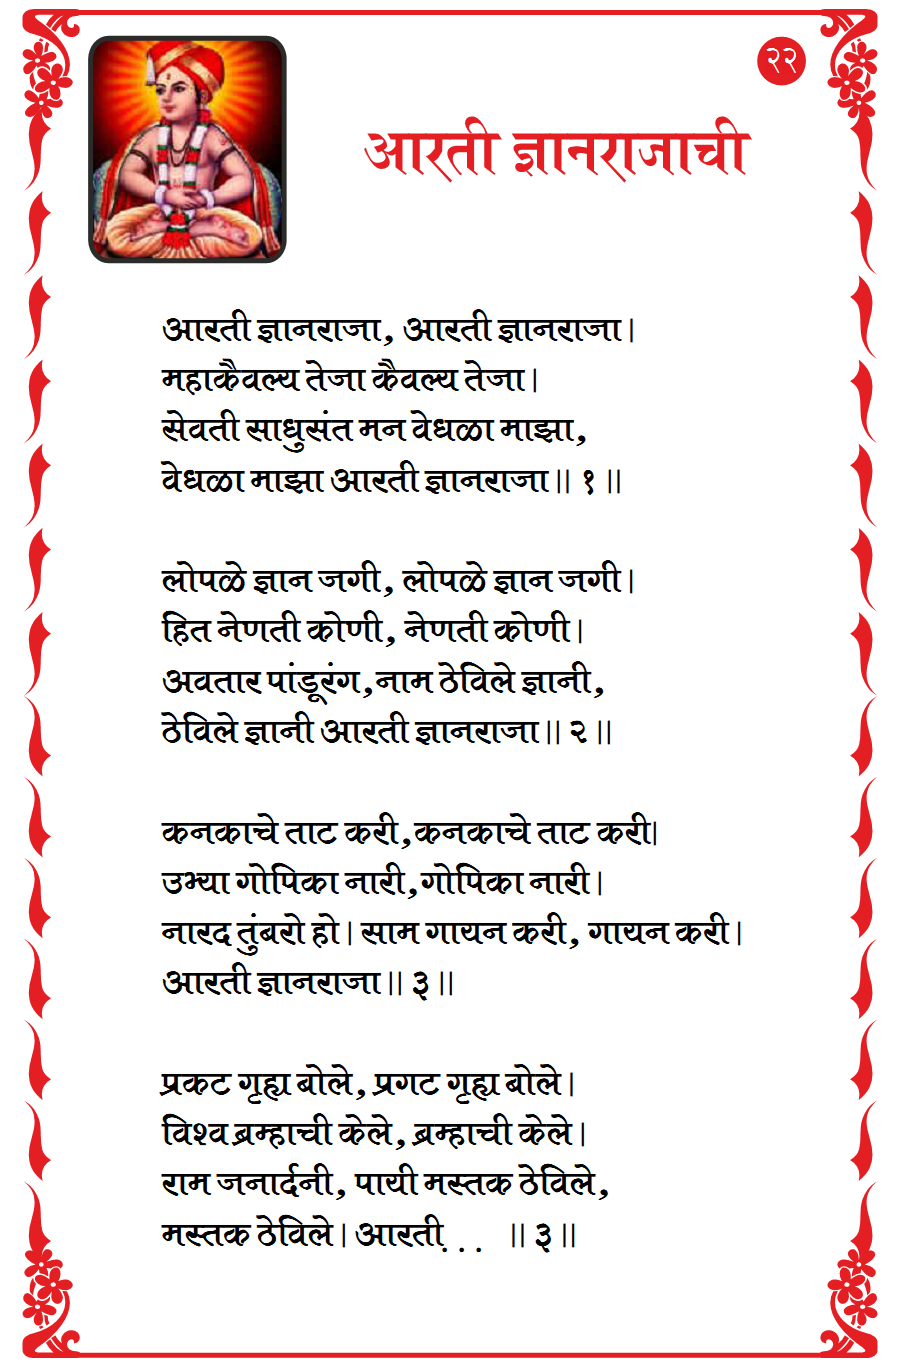 २२
आरती ज्ञानराजाची
आरती ज्ञानराजा, आरती ज्ञानराजा।
महाकैवल्य तेजा कैवल्य तेजा।
सेवती साधुसंत मन वेधळा माझा,
वेधळा माझा आरती ज्ञानराजा॥ १ ॥
लोपळे ज्ञान जगी, लोपळे ज्ञान जगी।
हित नेणती कोणी, नेणती कोणी।
अवतार पांडूरंग,नाम ठेविले ज्ञानी,
ठेविले ज्ञानी आरती ज्ञानराजा॥ २ ॥
कनकाचे ताट करी,कनकाचे ताट करी।
उभ्या गोपिका नारी,गोपिका नारी।
नारद तुंबरो हो। साम गायन करी, गायन करी।
आरती ज्ञानराजा॥ ३॥
प्रकट गृह्य बोले, प्रगट गृह्य बोले।
विश्व ब्रम्हाची केले, ब्रम्हाची केले।
राम जनार्दनी, पायी मस्तक ठेविले,
मस्तक ठेविले। आरती... ॥ ३॥